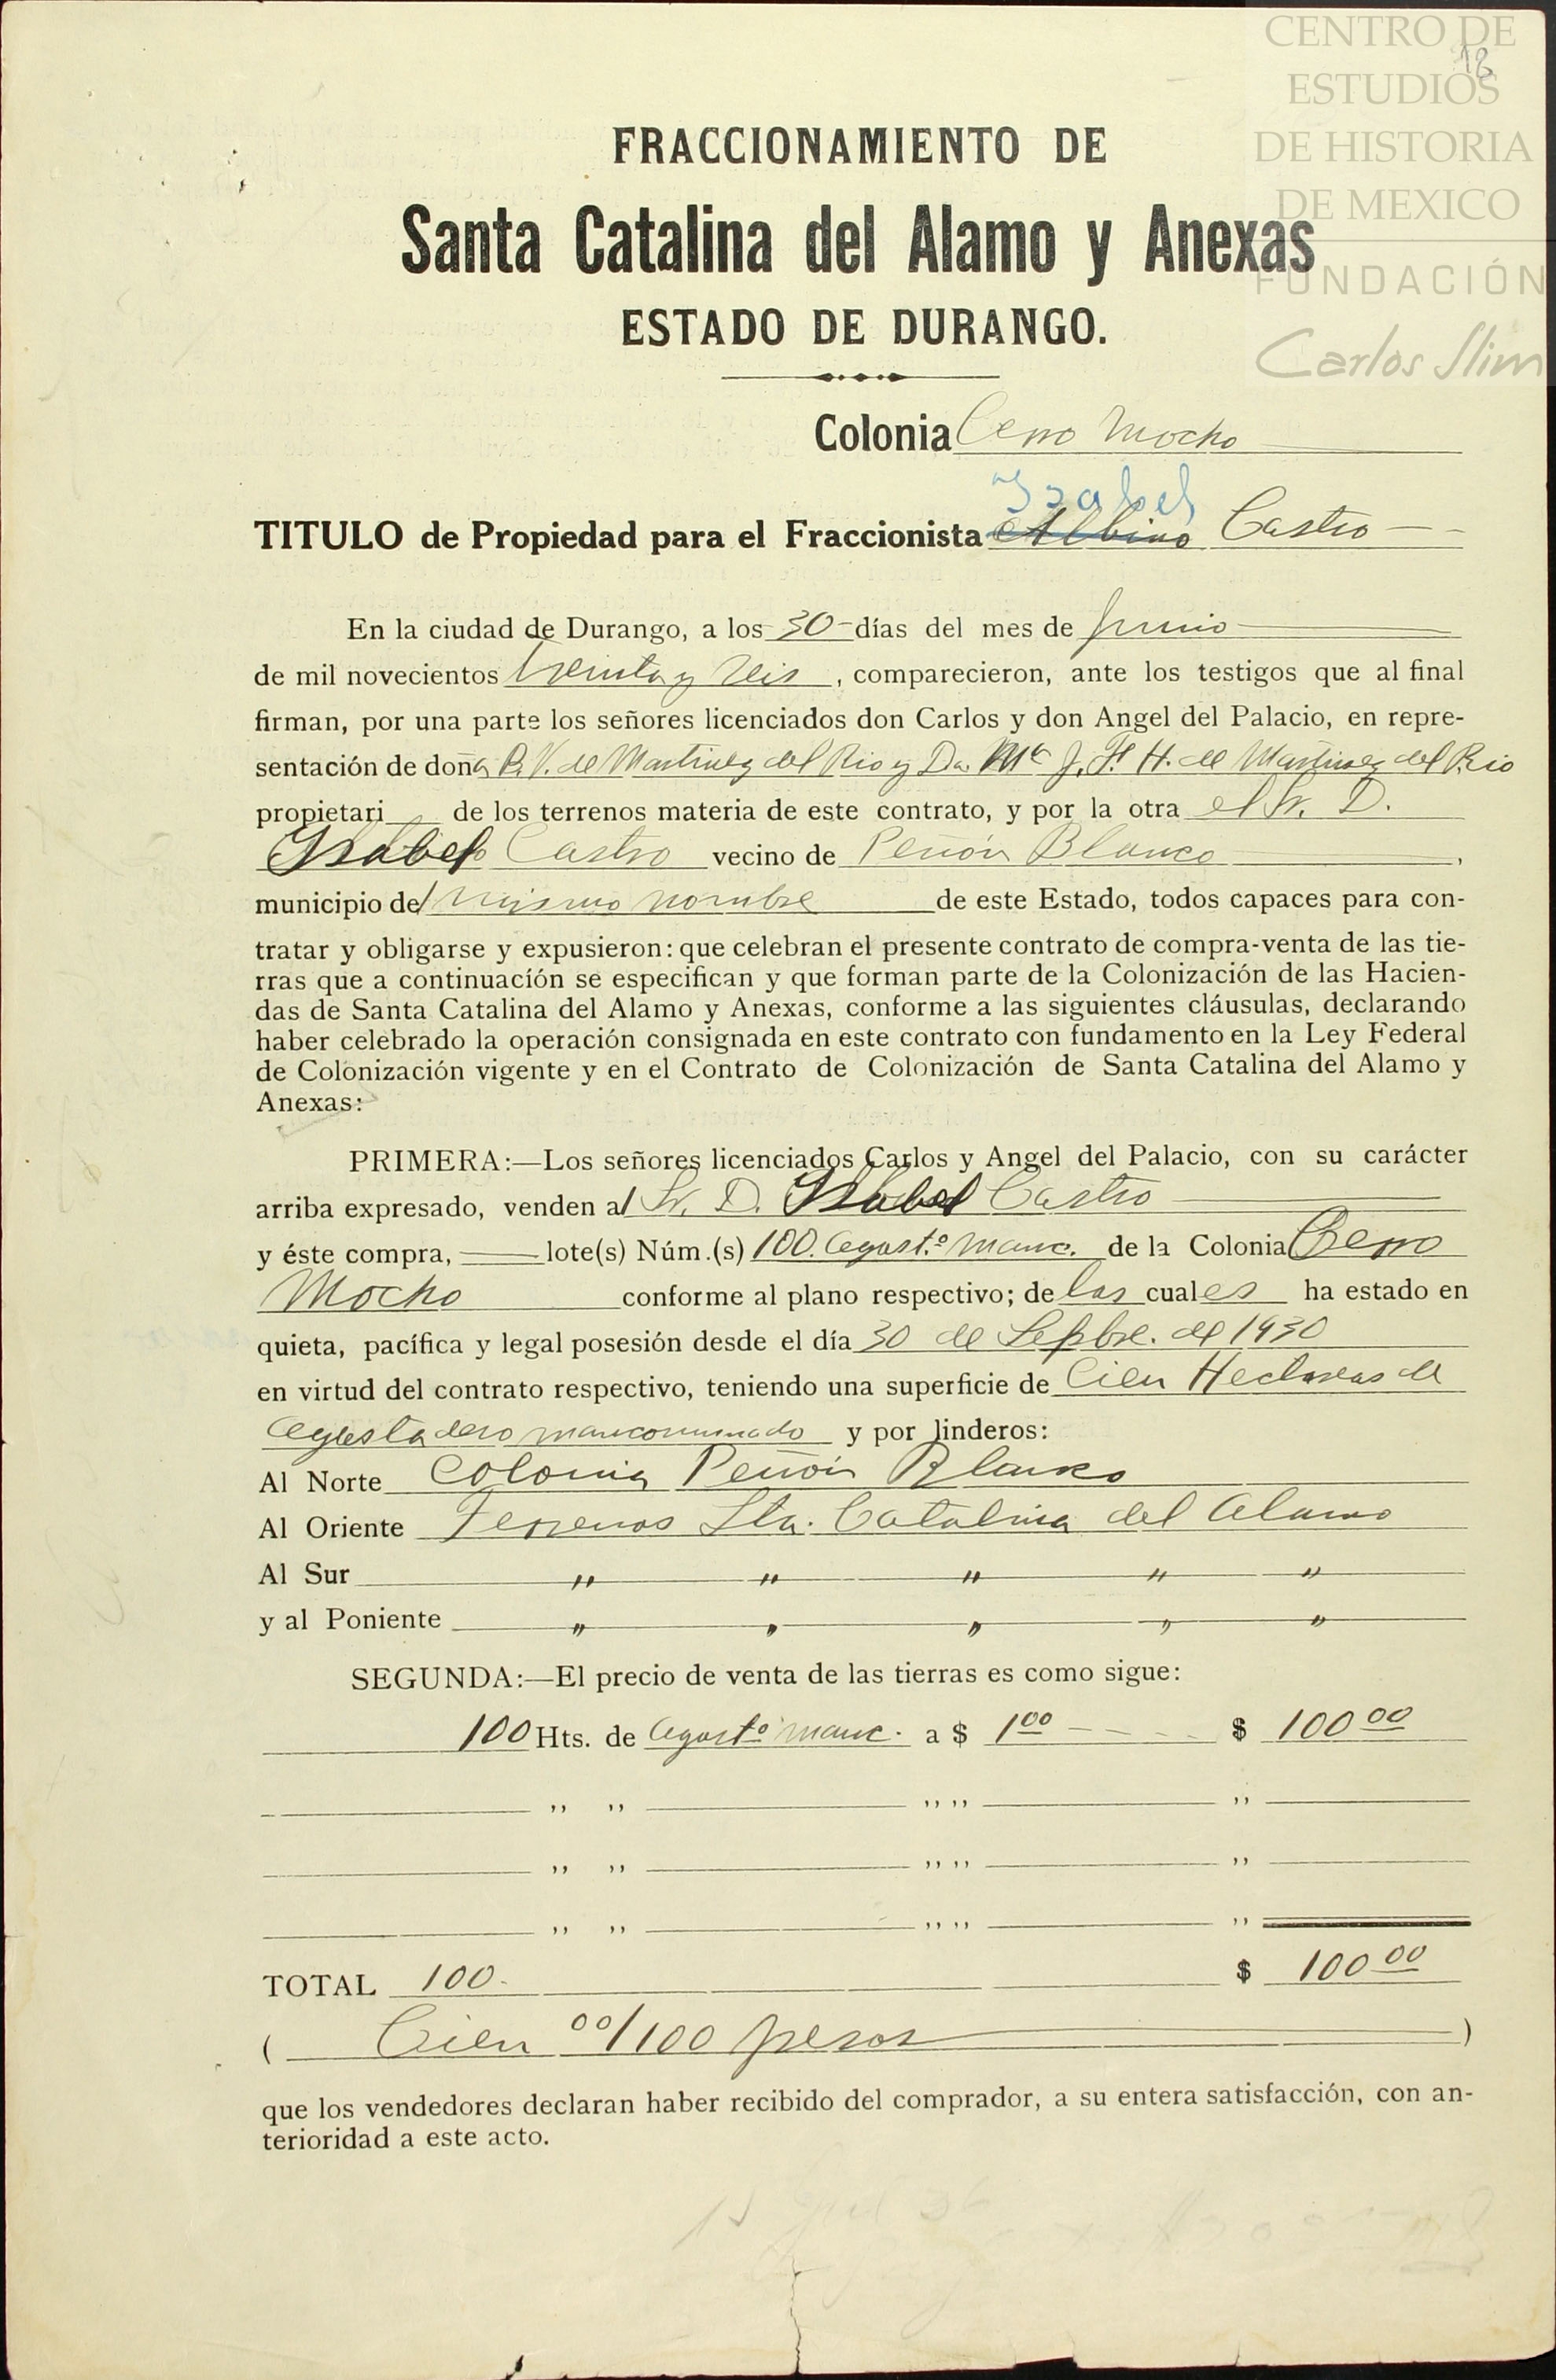 CENTRO DE
ESTUDIOS
DE HISTORIA
DE MEXICO
FUNDACIÓN
Carlos Slim
18
FRACCIONAMIENTO DE
Santa Catalina del Alamo y Anexas
ESTADO DE DURANGO.
Colonia Cerro Mocho
Isabel
TITULO de Propiedad para el Fraccionista Albino Castro
En la ciudad de Durango, a los 30 días del mes de Junio
de mil novecientos treinta y seis, comparecieron, ante los testigos que al final
firman, por una parte los señores licenciados don Carlos y don Angel del Palacio, en repre-
sentación de doña B. V. de Martinez del Rio y Da. Ma. J. F. H. de Martinez del Rio
propietari de los terrenos materia de este contrato, y por la otra el Sr. D.
Isabel Castro vecino de Peñón Blanco,
municipio del mismo nombre de este Estado, todos capaces para con-
tratar y obligarse y expusieron: que celebran el presente contrato de compra-venta de las tie-
rras que a continuación se especifican y que forman parte de la Colonización de las Hacien-
das de Santa Catalina del Alamo y Anexas, conforme a las siguientes cláusulas, declarando
haber celebrado la operación consignada en este contrato con fundamento en la Ley Federal
de Colonización vigente y en el Contrato de Colonización de Santa Catalina del Alamo y
Anexas:
PRIMERA:—Los señores licenciados Carlos y Angel del Palacio, con su carácter
arriba expresado, venden al Sr. D. Isabel Castro
y éste compra, lote(s) Núm.(s) 100. Agost.º manc. de la Colonia Cerro
Mocho conforme al plano respectivo; de las cuales ha estado en
quieta, pacífica y legal posesión desde el día 30 de Sepbre. de 1930
en virtud del contrato respectivo, teniendo una superficie de Cien Hectareas de
Agostadero mancomunado y por linderos:
Al Norte Colonia Peñón Blanco
Al Oriente Terrenos Sta. Catalina del Alamo
Al Sur " " " " "
y al Poniente " " " " "
SEGUNDA:—El precio de venta de las tierras es como sigue:
100 Hts. de Agostº manc. a $ 1 00 $ 100 00
,, ,, ,, ,, ,,
,, ,, ,, ,, ,,
,, ,, ,, ,, ,,
TOTAL 100. $ 100 00
( Cien 00/100 pesos )
que los vendedores declaran haber recibido del comprador, a su entera satisfacción, con an-
terioridad a este acto.